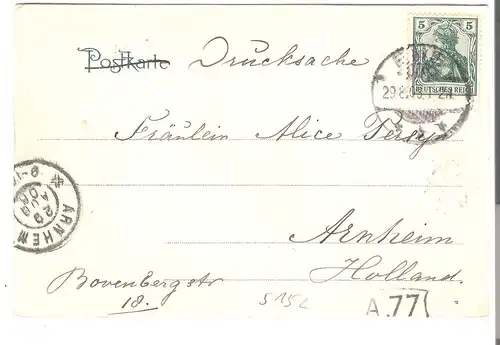 Postkarte Drucksache
5
DEUTSCHES REICH
29.8.
Fräulein Alice Persyn
ARNHEM
29
AUG
06
9-10
Arnheim
Holland.
Bovenbergstr
18.
515L
A.77